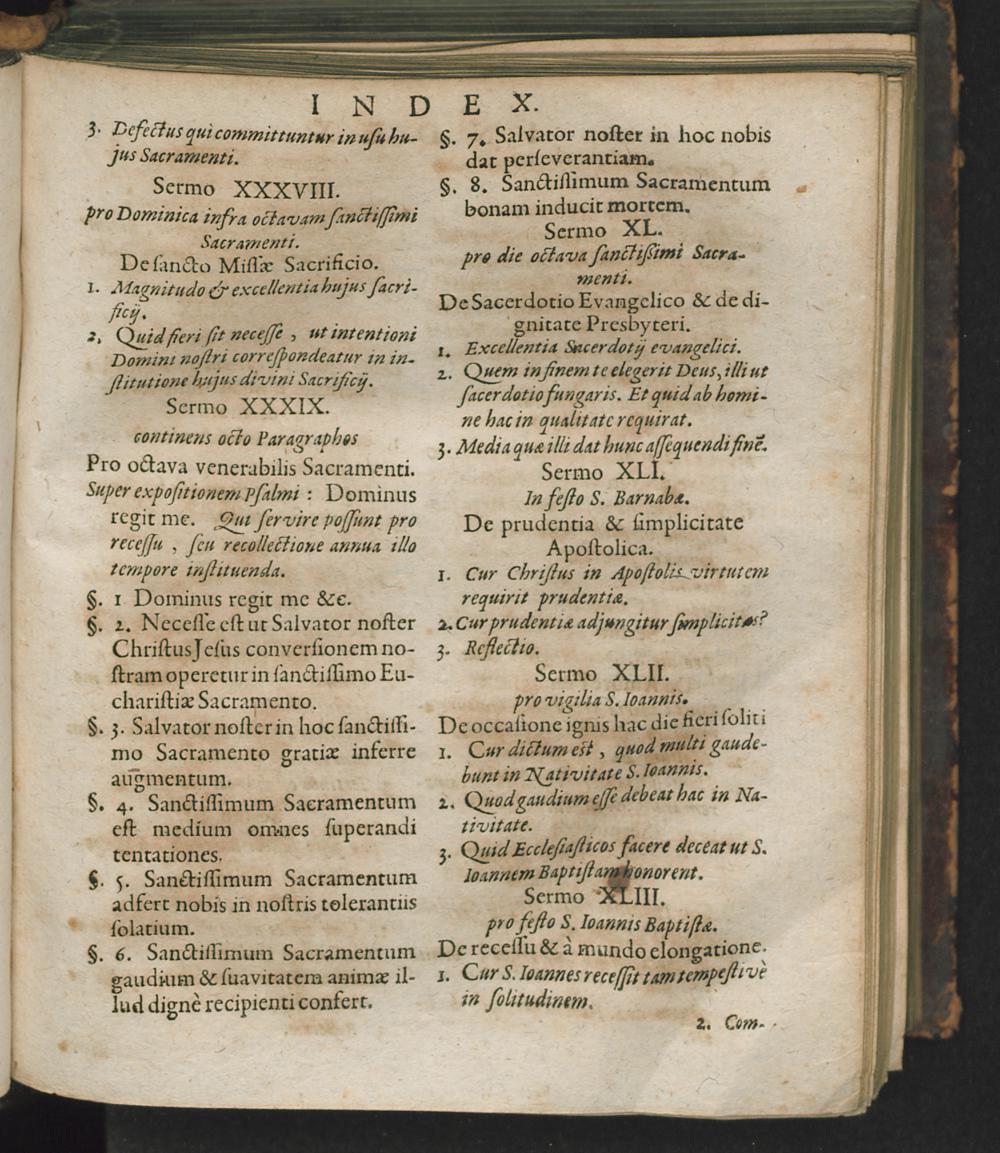 INDEX.
3. Defectus qui committuntur in usu hu-
jus Sacramenti.
Sermo XXXVIII.
pro Dominica infra octavam sanctissimi
Sacramenti.
De sancto Missæ Sacrificio.
1. Magnitudo & excellentia hujus sacri-
ficij.
2. Quid fieri sit necesse, ut intentioni
Domini nostri correspondeatur in in-
stitutione hujus divini Sacrificij.
Sermo XXXIX.
continens octo Paragraphos
Pro octava venerabilis Sacramenti.
Super expositionem Psalmi : Dominus
regit me. Qui servire possunt pro
recessu, seu recollectione annua illo
tempore instituenda.
§. 1 Dominus regit me &c.
§. 2. Necesse est ut Salvator noster
Christus Jesus conversionem no-
stram operetur in sanctissimo Eu-
charistiæ Sacramento.
§. 3. Salvator noster in hoc sanctissi-
mo Sacramento gratiæ inferre
augmentum.
§. 4. Sanctissimum Sacramentum
est medium omnes superandi
tentationes.
§. 5. Sanctissimum Sacramentum
adfert nobis in nostris tolerantiis
solatium.
§. 6. Sanctissimum Sacramentum
gaudium & suavitatem animæ il-
lud dignè recipienti confert.
§. 7. Salvator noster in hoc nobis
dat perseverantiam.
§. 8. Sanctissimum Sacramentum
bonam inducit mortem.
Sermo XL.
pro die octava sanctissimi Sacra-
menti.
De Sacerdotio Evangelico & de di-
gnitate Presbyteri.
1. Excellentia Sacerdotij evangelici.
2. Quem in finem te elegerit Deus, illi ut
sacerdotio fungaris. Et quid ab homi-
ne hac in qualitate requirat.
3. Media quæ illi dat hunc assequendi finē.
Sermo XLI.
In festo S. Barnabæ.
De prudentia & simplicitate
Apostolica.
1. Cur Christus in Apostolis virtutem
requirit prudentiæ.
2. Cur prudentiæ adjungitur simplicitas?
3. Reflectio.
Sermo XLII.
pro vigilia S. Ioannis.
De occasione ignis hac die fieri soliti
1. Cur dictum est, quod multi gaude-
bunt in Nativitate S. Ioannis.
2. Quod gaudium esse debeat hac in Na-
tivitate.
3. Quid Ecclesiasticos facere deceat ut S.
Ioannem Baptistam honorent.
Sermo XLIII.
pro festo S. Ioannis Baptistæ.
De recessu & à mundo elongatione.
1. Cur S. Ioannes recessit tam tempestivè
in solitudinem.
2. Com-